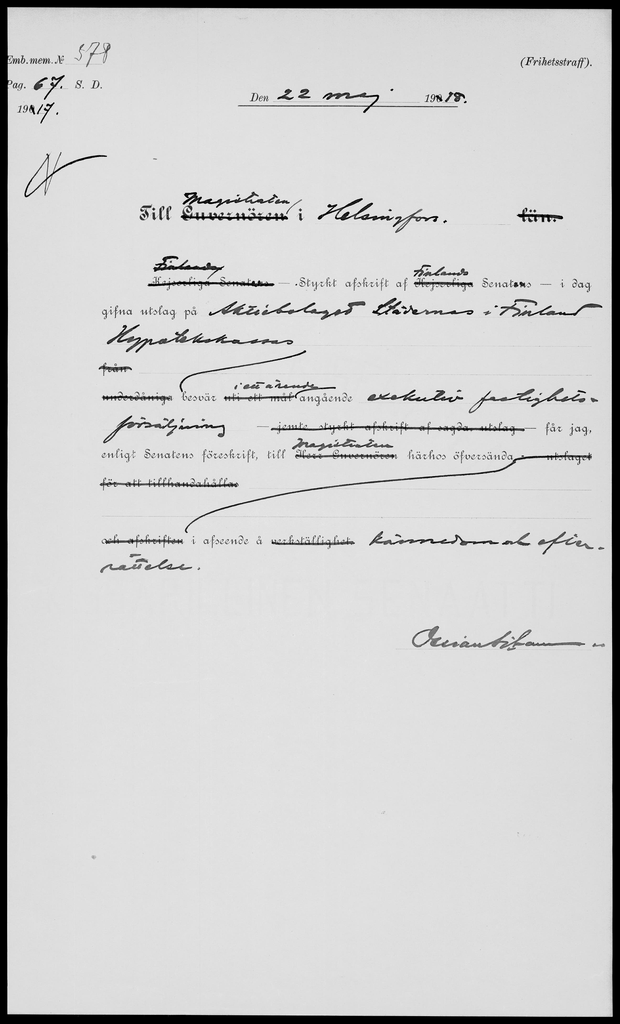 Emb. mem. № 578
(Frihetsstraff).
Pag. 67. S. D.
1917.
Den 22 maj 1918.
Magistraten
Till Guvernören i Helsingfors. län.
Finlands Finlands
Kejserliga Senatens — Styrkt afskrift af Kejserliga Senatens — i dag
gifna utslag på Aktiebolaget Städernas i Finland
Hypotekskassas
från
i ett ärende
underdåniga besvär uti ett mål angående exekutiv fastighets-
försäljning — jemte styrkt afskrift af sagda utslag — får jag,
Magistraten
enligt Senatens föreskrift, till Herr Guvernören härhos öfversända, — utslaget
för att tillhandahållas
och afskriften i afseende å verkställighet. kännedom och efter-
rättelse.